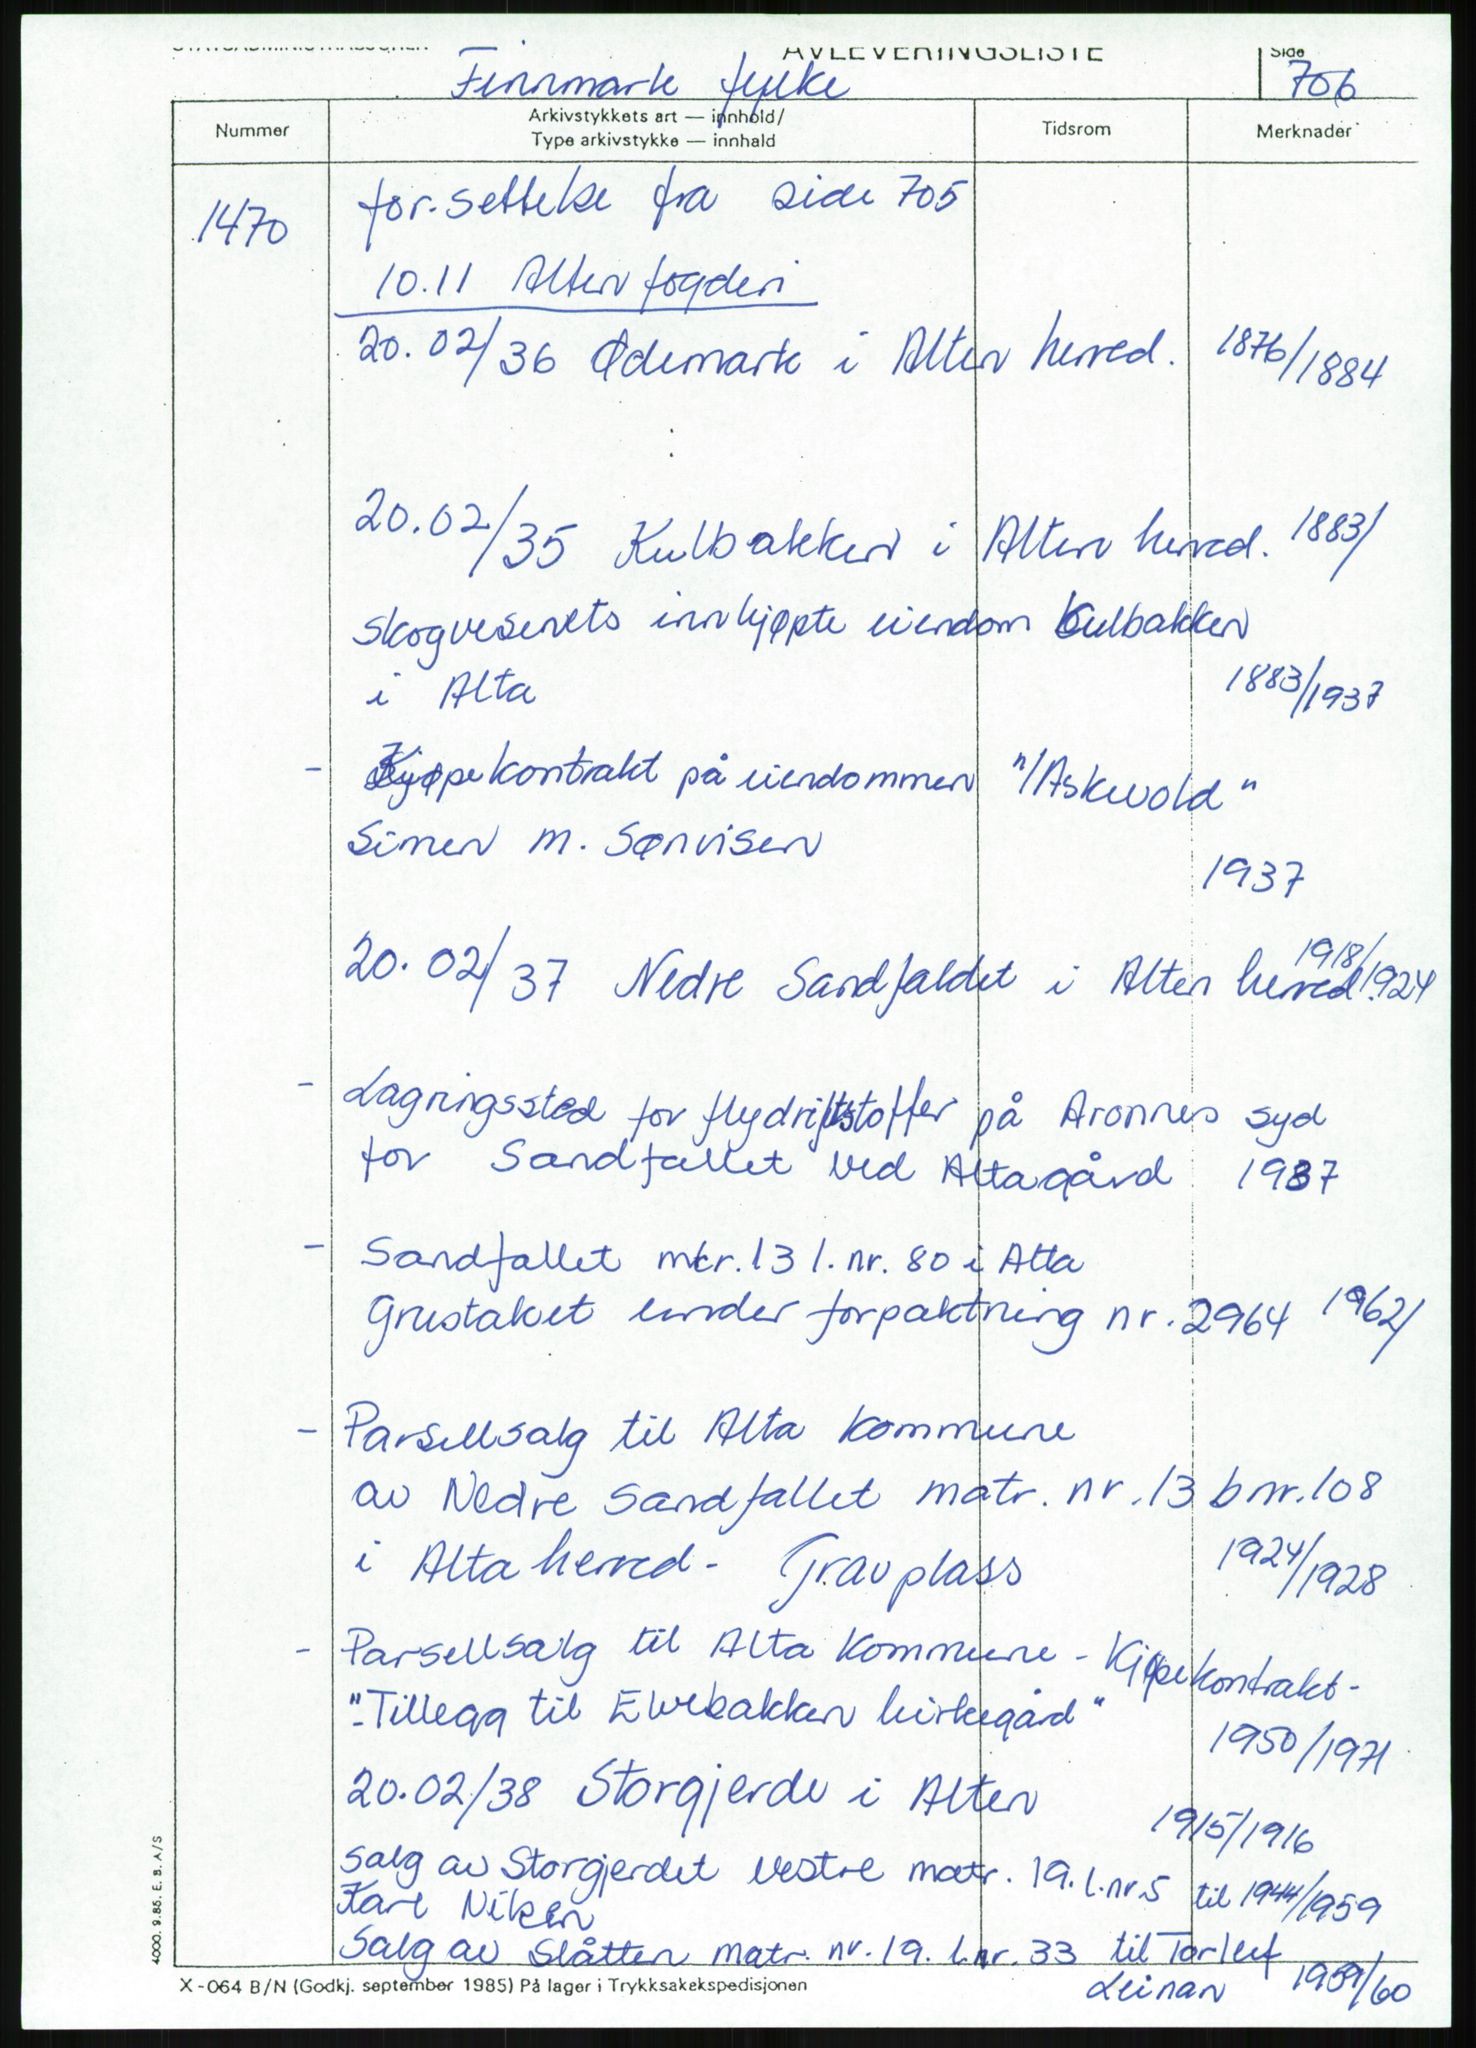 AVLEVERINGSLISTE
Side
Finnmark fylke 706
Nummer
Arkivstykkets art — innhold/
Type arkivstykke — innhald
Tidsrom
Merknader
1470
for.settelse fra side 705
10.11 Alten fogderi
20.02/36 Ødemark i Alten herred. 1876/1884
20.02/35 Kulbakken i Alten herred. 1883/
skogvesenets innkjøpte eiendom Kulbakken
i Alta 1883/1937
- Kjøpekontrakt på eiendommen "Askvold"
Simen M. Sørvisen
1937
20.02/37 Nedre Sandfaldet i Alten herred 1918/1924
- Lagringssted for flydriftstoffer på Aronnes syd
for Sandfallet ved Altagård 1937
- Sandfallet mtr. 13 l. nr. 80 i Alta
Grustaket under forpaktning nr. 2964 1962/
- Parsellsalg til Alta kommune
av Nedre Sandfallet matr. nr. 13 bnr. 108
i Alta herred - Gravplass 1924/1928
- Parsellsalg til Alta kommune - Kjøpekontrakt -
"Tillegg til Elvebakken kirkegård"
1950/1971
20.02/38 Storgjerde i Alten
1915/1916
Salg av Storgjerdet vestre matr. 19. l.nr. 5 til 1944/1959
Kare Nilsen
Salg av Slåtten matr. nr. 19. l.nr. 33 til Torleif
Leinan 1959/60
X-064 B/N (Godkj. september 1985) På lager i Trykksakekspedisjonen
4000. 9.85. E. B. A/S